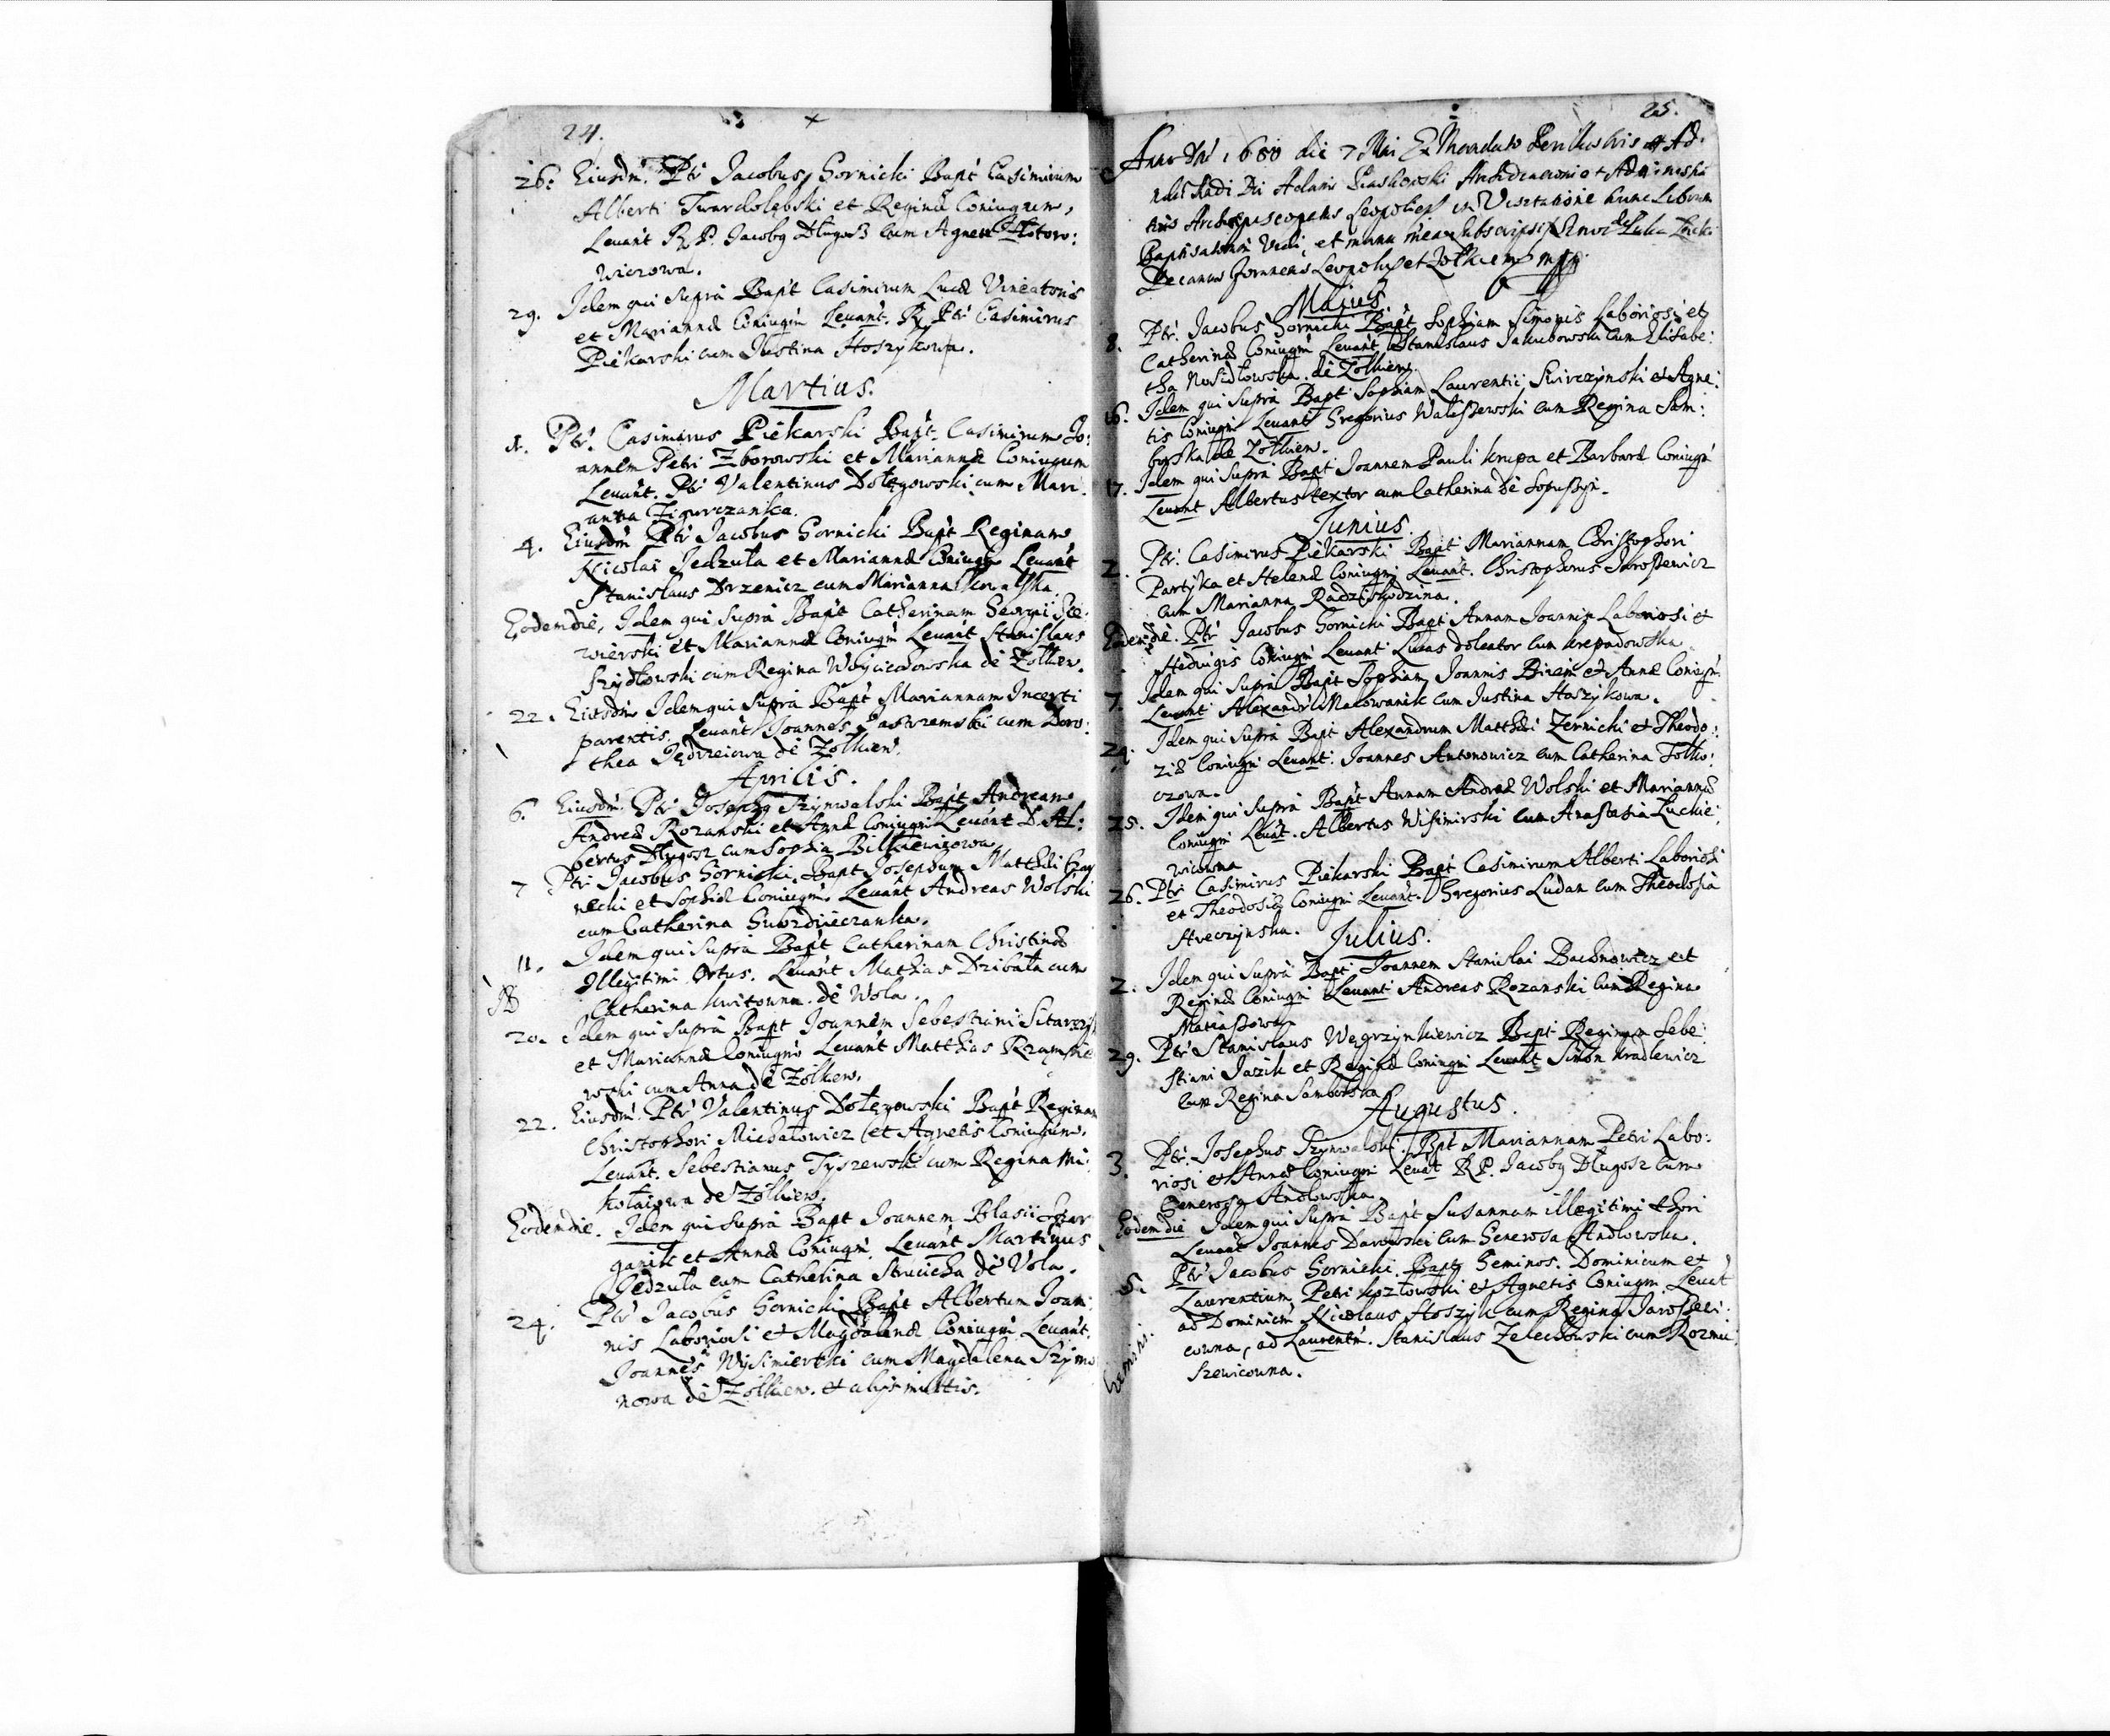 24.
26. Eiusdm. Ptr Jacobus Gornicki Bapt Casimirum
Alberti Twardolębski et Reginæ Coniugum,
Levant R. P. Jacobg Długosz cum Agnete
wiczowa.
29. Idem qui supra Bapt Casimirum Lucæ Vineatoris
et Mariannæ Coniugm Levant. R. Ptr Casimirus
Piekarski cum Justina Hoszykowa.
Martius.
1. Ptr. Casimirus Piekarski Bapt. Casimirum Jo:
annem Petri Zborowski et Mariannæ Coniugum
Levant. Ptr Valentinus Dołęgowski cum Mari:
anna Zigurczanka.
4. Eiusdm Ptr Jacobus Gornicki Bapt Reginam
Nicolai Jedzuła et Mariannæ Coniugm Levant
Stanislaus Drzenicz cum Marianna
Eodem die, Idem qui supra Bapt Catherinam Georgii Sie:
wierski et Mariannæ Coniugm Levant Stanislaus
Szydłowski cum Regina Woyciechowska de Zolkiew.
22. Eiusdm Idem qui supra Bapt Mariannam Incerti
parentis. Levant Joannes Jastrzemski cum Doro:
thea Jędrzeiowa de Zolkiew.
Aprilis.
6. Eiusdm. Ptr Josephg Szynwalski Bapt Andream
Andreæ Rozanski et Annæ Coniugm Levant D. Al:
bertus Długosz cum Sophia Bilkiewiczowa
7 Ptr Jacobus Gornicki. Bapt Josephum Matthæi Czar
necki et Sophiæ Coniugm. Levant Andreas Wolski
cum Catherina Gwozdzieczanka.
11. Idem qui supra Bapt Catherinam Christinæ
Illegitimi Ortus. Levant Mathias Dzibała cum
NB Catherina Kwitowna. de Wola.
20. Idem qui supra Bapt Joannem Sebestiani Sitarczyk
et Mariannæ Coniugm Levant Matthias Rzampie
wski cum Anna de Zolkiew.
22. Eiusdm. Ptr Valentinus Dołęgowski Bapt Reginam
Christophori Michałowicz et Agnetis Coniugum.
Levant. Sebestianus Tyszewski cum Regina Mi:
kołaiowa de Zolkiew.
Eodem die. Idem qui supra Bapt Joannem Blasii
ganik et Annæ Coniugm. Levant Martinus
Jedzuła cum Catherina Strucicha de Vola.
24. Ptr Jacobus Gornicki Bapt Albertum Joan:
nis Laboriosi et Magdalenæ Coniugm. Levant.
Joannes Wysimierski cum Magdalena Szymo
nowa de Zolkiew. et alys multis.
25.
Anno Dni 1680 die 7 Mai Ex Mandato Perillustris et Ad.
ndi Dni Adami Piaskowski Archidiaconi et Administra
toris Archiepiscopatus Leopolien in Visitatione hunc Librum
Baptisatorum Vidi, et manu mea subscripsi
Decanus foraneus Leopolien et Zolkiem mpp.
Maius
8. Ptr. Jacobus Gornicki Bapt Sophiam Simonis Laboriosi et
Catherinæ Coniugm Levant Stanislaus Jakubowski cum Elisabe:
tha Nosidłowska. de Zolkiew.
16. Idem qui supra Bapt Sophiam Laurentii Swirczynski et Agne:
tis Coniugm Levant Gregorius Walaszewski cum Regina Sam:
borska de Zolkiew.
17. Idem qui supra Bapt Joannem Pauli Krupa et Barbaræ Coniugm
Levant Albertus textor cum Catherina de Sopuszyn.
Junius.
2. Ptr. Casimirus Piekarski Bapt Mariannam Christophori
Partyka et Helenæ Coniugm Levant. Christophorus Jaroszewicz
cum Marianna
Eodem die. Ptr Jacobus Gornicki Bapt Annam Joannis Laboriosi et
Hedvigis Coniugm Levant Lucas doleator cum Krepadowska
7. Idem qui supra Bapt Sophiam Joannis et Annæ Coniugm
Levant Alexandr Makowanik cum Justina Hoszykowa.
24. Idem qui supra Bapt Alexandrum Matthæi Zernicki et Theodo:
ziæ Coniugm Levant. Joannes Antonowicz cum Catherina Tołło:
czowa.
25. Idem qui supra Bapt Annam Andreæ Wolski et Mariannæ
Coniugm Levat. Albertus Wisimirski cum Anastasia Luckie:
wiczowna
26. Ptr Casimirus Piekarski Bapt Casimirum Alberti Laboriosi
et Theodosiæ Coniugm Levant. Gregorius Ludan cum Theodosia
Streczynska.
Julius.
2. Idem qui supra Bapt Joannem Stanislai Bachnowicz et
Reginæ Coniugm Levant Andreas Rozanski cum Regina
Matiaszowa
29. Ptr Stanislaus Węgrzynkiewicz Bapt Reginam Sebe:
stiani Jazik et Reginæ Coniugm Levant Simon Kradlewicz
cum Regina Samborska
Augustus.
3. Ptr. Josephus Szynwalski. Bpt Mariannam Petri Labo:
riosi et Annæ Coniugm Levat R. P. Jacobg Długosz cum
Generosa Andlowska
Eodem die Idem qui supra Bapt Susannam illegitimi thori
Levant Joannes Darowski cum Generosa Andlowska.
5. Ptr Jacobus Gornicki. Bapt Geminos. Dominicum et
Laurentium Petri Kozłowski et Agnetis Coniugm Levat
ad Dominicm Nicolaus Hoszyk cum Regina Jaroszewi:
cowna, ad Laurentm. Stanislaus Zelechowski cum Rozmi
szewicowna.
Gemini.